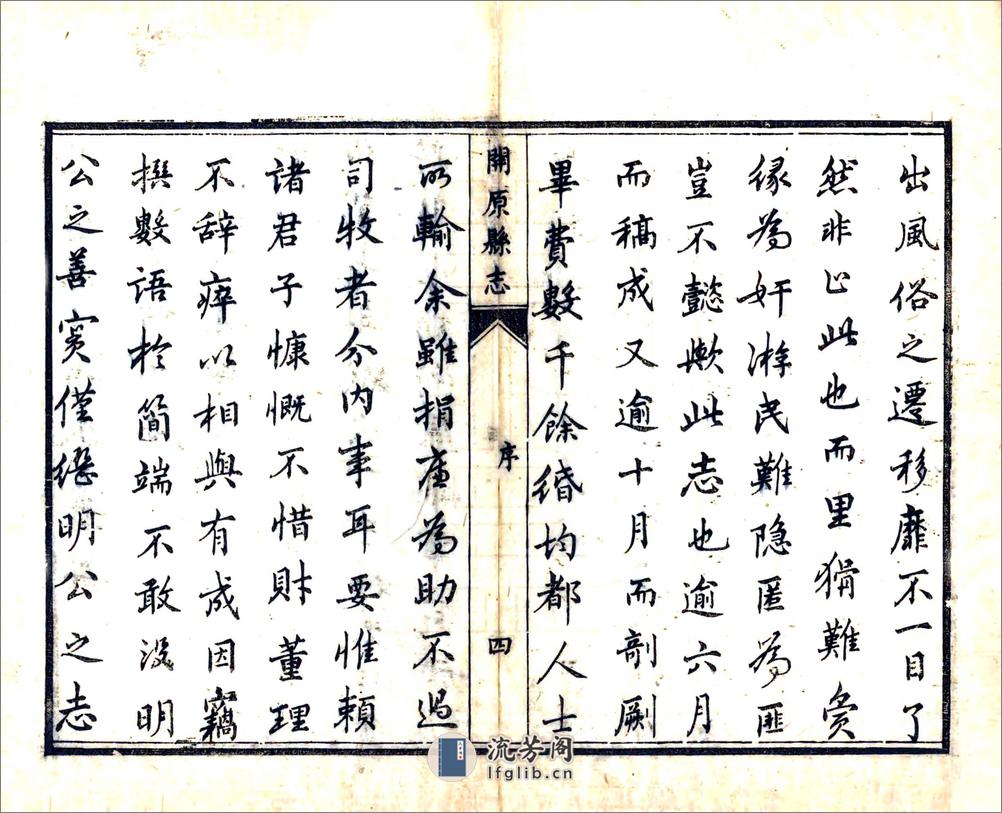 出風俗之遷移靡不一目了
然非止此也而里猾難夤
緣為奸游民難隐匿為匪
豈不懿歟此志也逾六月
而稿成又逾十月而剞劂
畢費數千餘緡均都人士
開原縣志
序
四
所輸余雖捐廉為助不過
司牧者分内事耳要惟賴
諸君子慷慨不惜財董理
不辞瘁以相與有成因竊
撰數語於简端不敢没明
公之善實僅繼明公之志
流芳阁
lfglib.cn